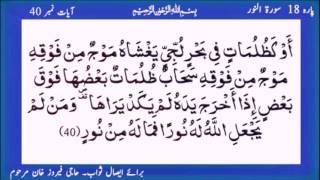 پارہ 18 سورۃ النور بِسْمِ اللّٰهِ الرَّحْمٰنِ الرَّحِيْمِ آیات نمبر 40
أَوْ كَظُلُمَاتٍ فِي بَحْرٍ لُجِّيٍّ يَغْشَاهُ مَوْجٌ مِنْ فَوْقِهِ
مَوْجٌ مِنْ فَوْقِهِ سَحَابٌ ظُلُمَاتٌ بَعْضُهَا فَوْقَ
بَعْضٍ إِذَا أَخْرَجَ يَدَهُ لَمْ يَكَدْ يَرَاهَا ۗ وَمَنْ لَمْ
يَجْعَلِ اللَّهُ لَهُ نُورًا فَمَا لَهُ مِنْ نُورٍ (40)
برائے ایصال ثواب۔ حاجی فیروز خان مرحوم